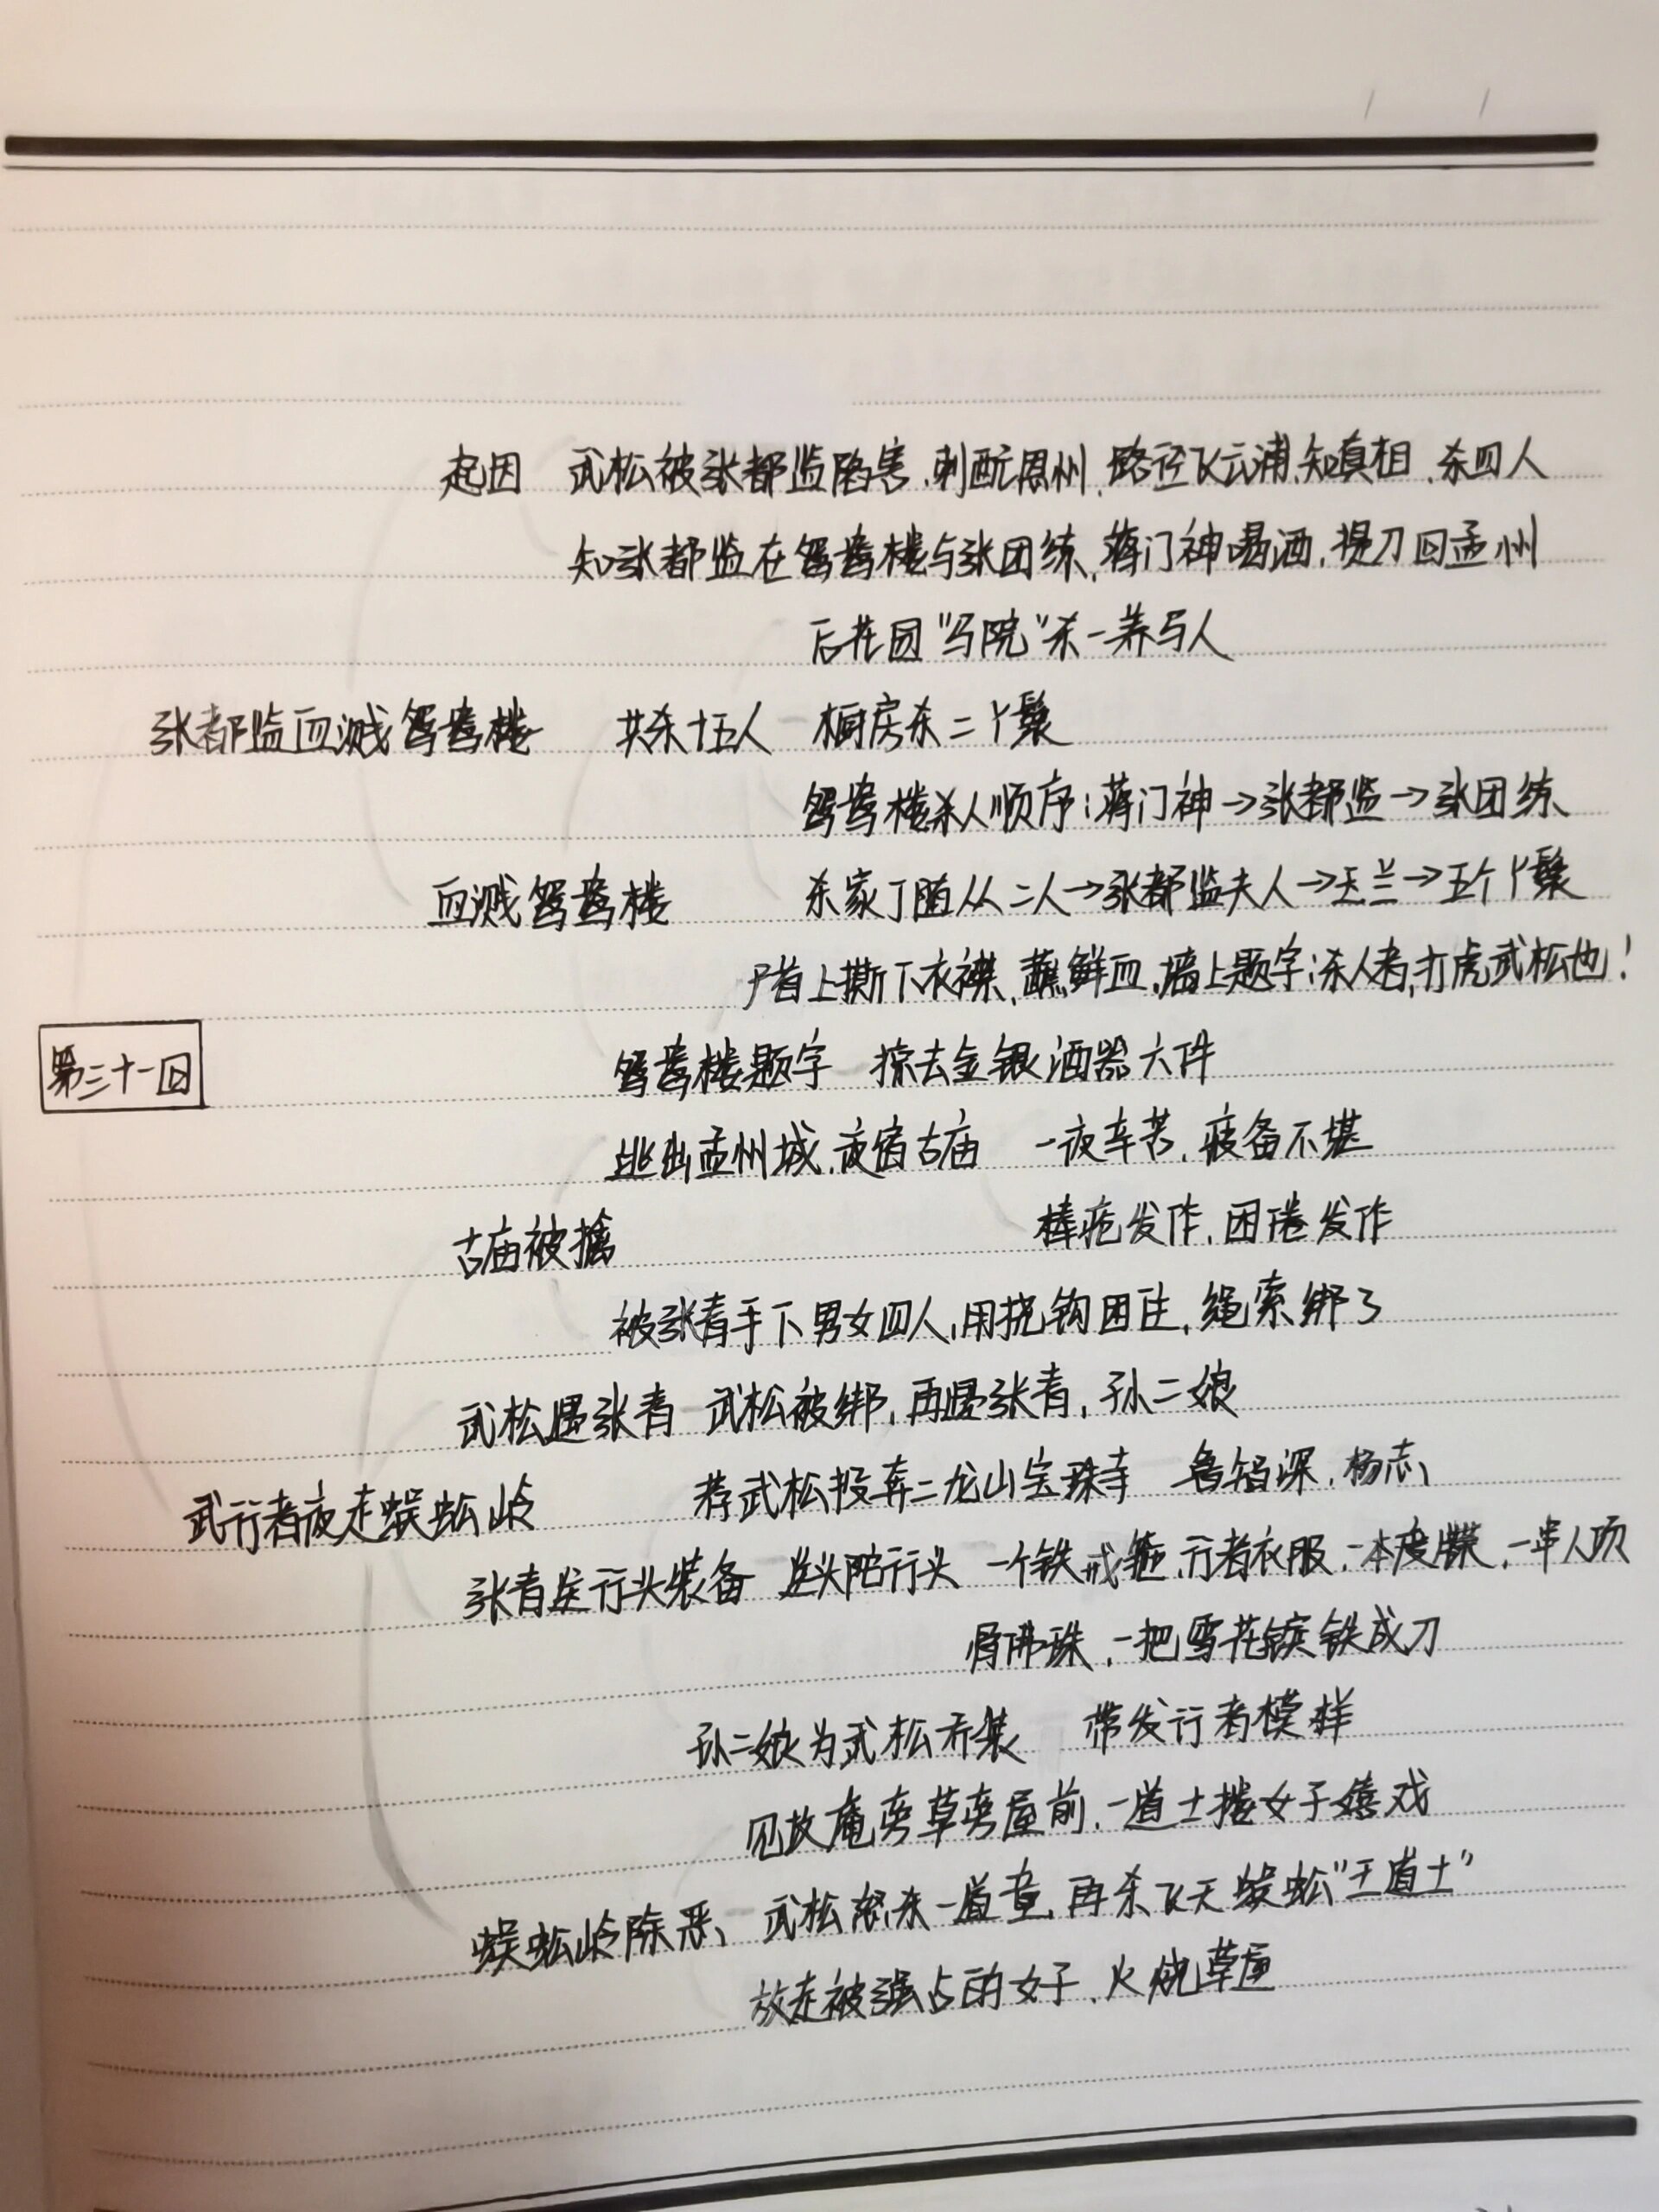 起因 武松被张都监陷害,刺配恩州,路径飞云浦,知真相,杀四人
知张都监在鸳鸯楼与张团练,蒋门神喝酒,提刀回孟州
后花园"马院"杀一养马人
张都监血溅鸳鸯楼 共杀十五人 橱房杀二丫鬟
鸳鸯楼杀人顺序:蒋门神→张都监→张团练
血溅鸳鸯楼 杀家丁随从二人→张都监夫人→玉兰→五个丫鬟
尸首上撕下衣襟,蘸鲜血,墙上题字:杀人者,打虎武松也!
第三十一回 鸳鸯楼题字 掠去金银酒器六件
逃出孟州城,夜宿古庙 一夜辛苦,疲备不堪
古庙被擒 棒疮发作,困倦发作
被张青手下男女四人,用挠钩困住,绳索绑了
武松遇张青 武松被绑,再遇张青,孙二娘
武行者夜走蜈蚣岭 荐武松投奔二龙山宝珠寺 鲁智深,杨志
张青送行头装备 送头陀行头 一个铁戒箍,行者衣服,一本度牒,一串人顶
骨佛珠,一把雪花镔铁戒刀
孙二娘为武松乔装 带发行者模样
见故庵旁草旁屋前,一道士搂女子嬉戏
蜈蚣岭除恶 武松怒杀一道童,再杀飞天蜈蚣"王道士"
放走被强占的女子,火烧草屋